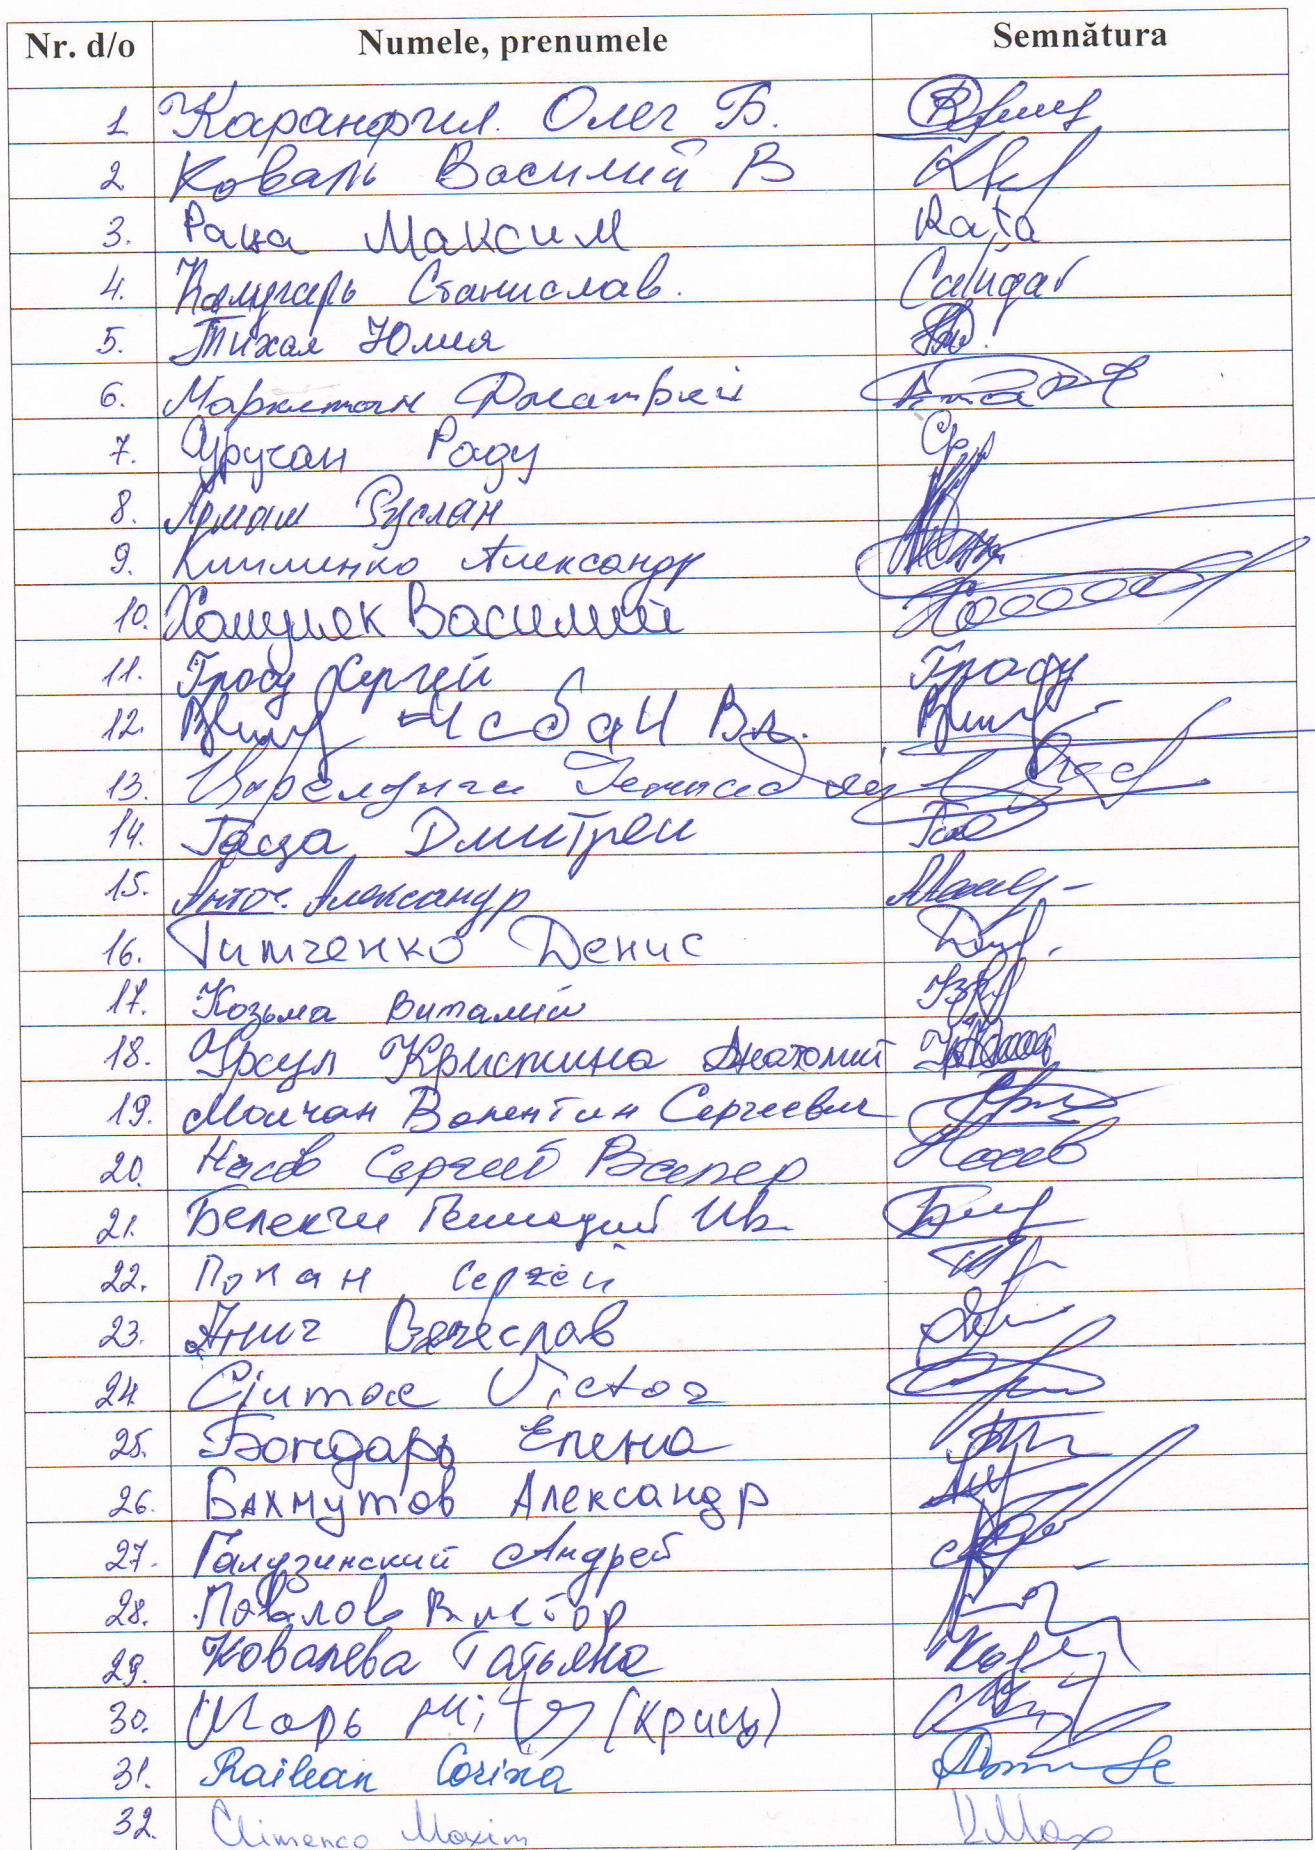 Nr. d/o Numele, prenumele Semnătura
1 Каранфил. Олег Б.
2 Коваль Василий В
3. Раца Максим Rața
4. Калугарь Станислав. Calugar
5. Тихая Юлия
6. Маркитан Дмитрий
7. Уручан Раду
8. Армаш Руслан
9. Клименко Александр
10. Василий
11. Гросу Сергей Гросу
12. Чебан Вл.
13. Геннадий
14. Гаца Дмитрий
15. Анточ. Александр
16. Тимченко Денис
17. Козьма Виталий
18. Урсул Кристина Анатолий
19. Молчан Валентин Сергеевич
20. Носов Сергей Валер
21. Белекчи Геннадий Ив.
22. Попан Сергей
23. Янич Вячеслав
24 Ciumac Victor
25. Бондарь Елена
26. Бахмутов Александр
27. Галузинский Андрей
28. Павлов Виктор
29. Ковалева Татьяна
30. Игорь
31. Railean Corina
32. Climenco Maxim